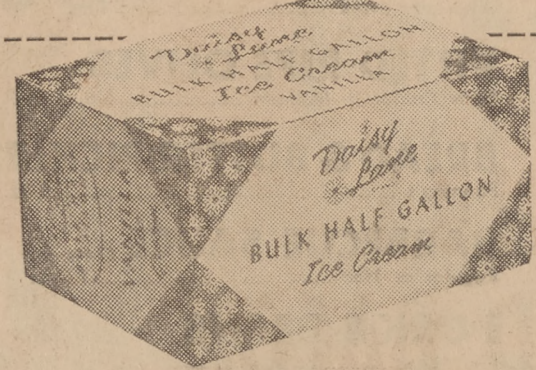 Daisy
Lane
BULK HALF GALLON
Ice Cream
VANILLA
Daisy
Lane
BULK HALF GALLON
Ice Cream
VANILLA